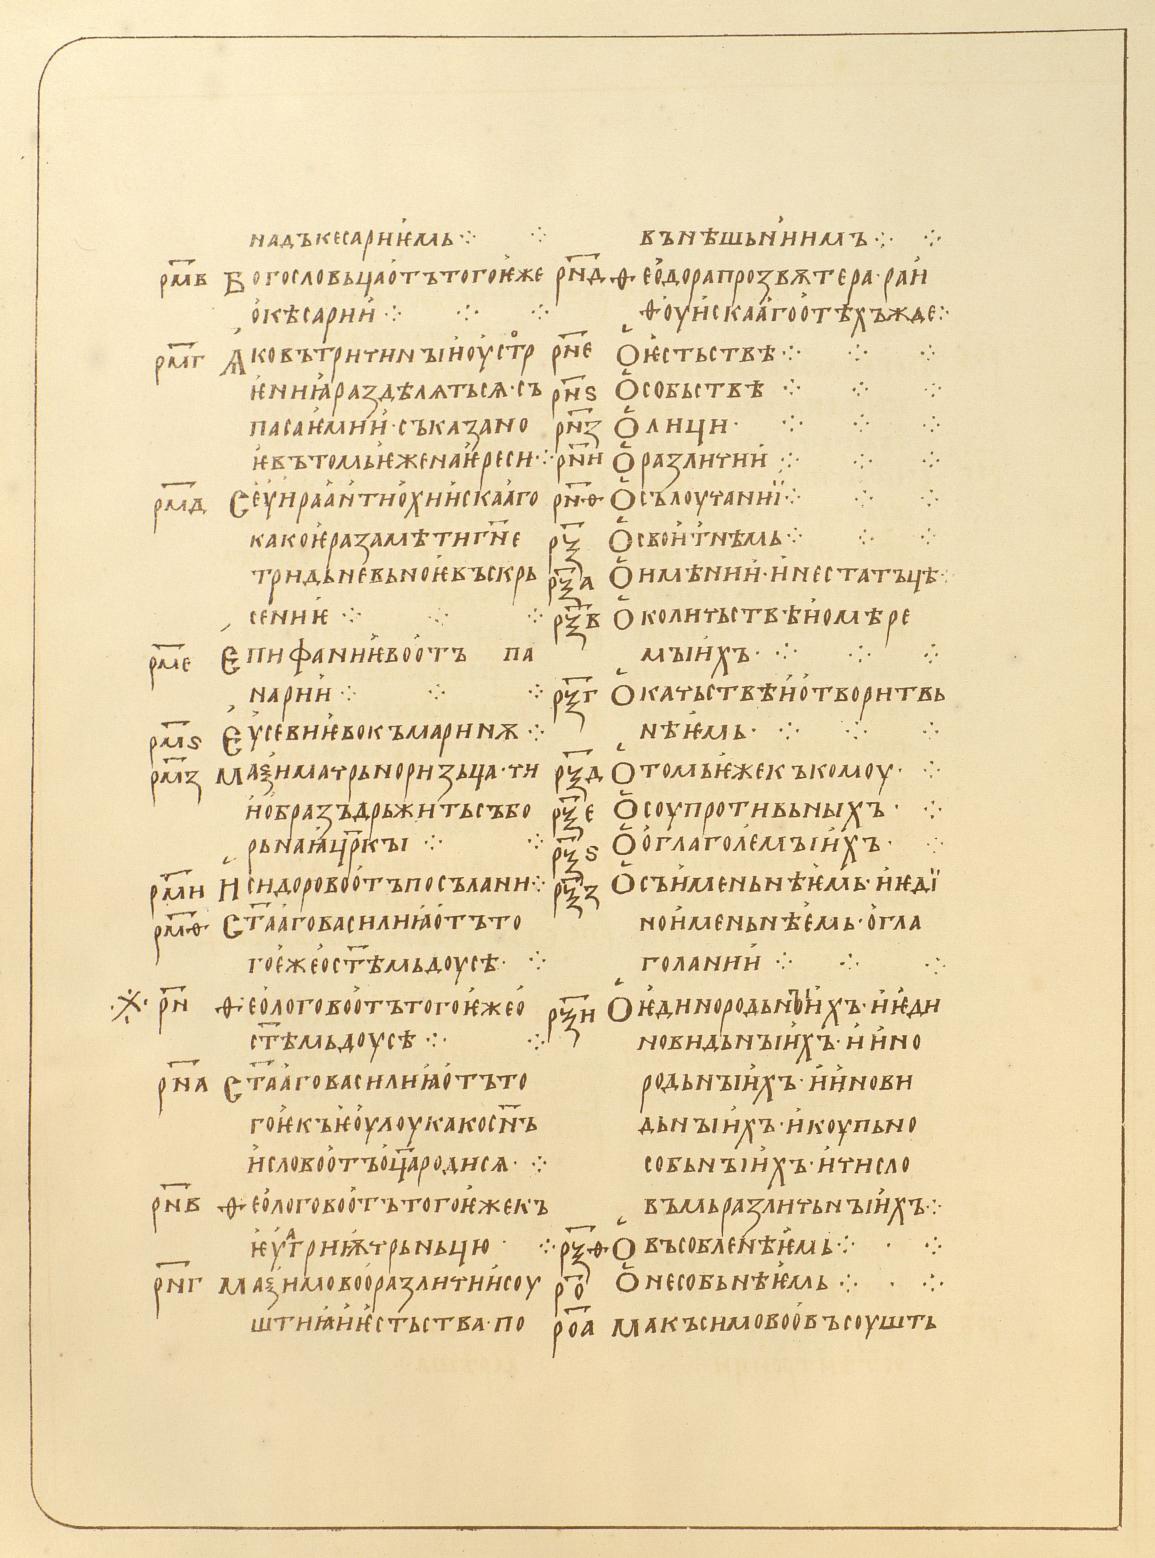 надъкесариѥмь⁘ ⁘
р҃мв Богословьцаотътогоѥже
окѣсарии⁘ ⁘ ⁘
р҃мг Ꙗковътричиныиоустр
ѥниꙗраздѣлѧтьсѧ·съ
пасаѥмии·съказано
ѥвътомьѥженаѥреси⁘
р҃мд Сеѵираантиохиискааго
какоѥразамѣтиг҃не
тридьневьноѥвъскрь
сениѥ⁘ ⁘ ⁘
р҃ме Епифаниѥвоотъ па
нарии⁘ ⁘ ⁘
р҃мѕ Еѵсевиѥвокъмаринѫ⁘
р҃мз Маѯимачрьноризьца·чи
иобразъдрьжитьсъбо
рьнаꙗцр҃кы ⁘ ⁘
р҃ми Исидоровоотъпосълани⁘
р҃мѳ Ст҃ааговасилиꙗотъто
гоежеост҃ѣмьдоусѣ· ⁘
р҃н Ѳеологовоотътогоѥжео
ст҃ѣмьдоусѣ⁘ ⁘
р҃на Ст҃ааговасилиꙗотъто
гоѥкъѥѵлоукакосн҃ъ
исловоотъоц҃ародисѧ· ⁘
р҃нв Ѳеологовоотътогоѥжекъ
ѥѵагриѭчрьньцю · ⁘
р҃нг Маѯимовооразличиисоу
штиꙗиѥстьства·по
вънѣшьниимъ⁘ ⁘
р҃нд Ѳеодорапрозвѫтера·раи
ѳоуискаагоотѣхъжде⁘
р҃не Оѥстьствѣ⁘ ⁘ ⁘
р҃нѕ Особьствѣ ⁘ ⁘ ⁘
р҃нз Олици· ⁘ ⁘ ⁘
р҃ни Оразличии ⁘ ⁘ ⁘
р҃нѳ Осълоучании⁘ ⁘ ⁘
р҃ѯ Освоиїнѣмь⁘ ⁘ ⁘
р҃ѯа Оимѣнии·инестатъцѣ⁘
р҃ѯв Околичьствѣиомѣре
мыихъ· ⁘ ⁘ ⁘
р҃ѯг Окачьствѣиотворитвь
нѣѥмь· ⁘ ⁘ ⁘
р҃ѯд Отомьѥжекъкомоу· ⁘
р҃ѯе Осоупротивьныхъ· ⁘
р҃ѯѕ Ооглаголемыихъ· ⁘
р҃ѯз Осъименьнѣѥмь·иѥдї
ноименьнѣемь·огла
голании ⁘ ⁘ ⁘
р҃ѯи Оѥдинородьныихъ·иѥди
новидьныихъ·иино
родьныихъ·иинови
дьныихъ·икоупьно
собьныихъ·ичисло
въмьразличьныихъ⁘
р҃ѯѳ Овъсобленѣѥмь⁘ · ⁘
р҃о Онесобьнѣѥмь⁘ · ⁘
р҃оа Макъсимовоовъсоушть